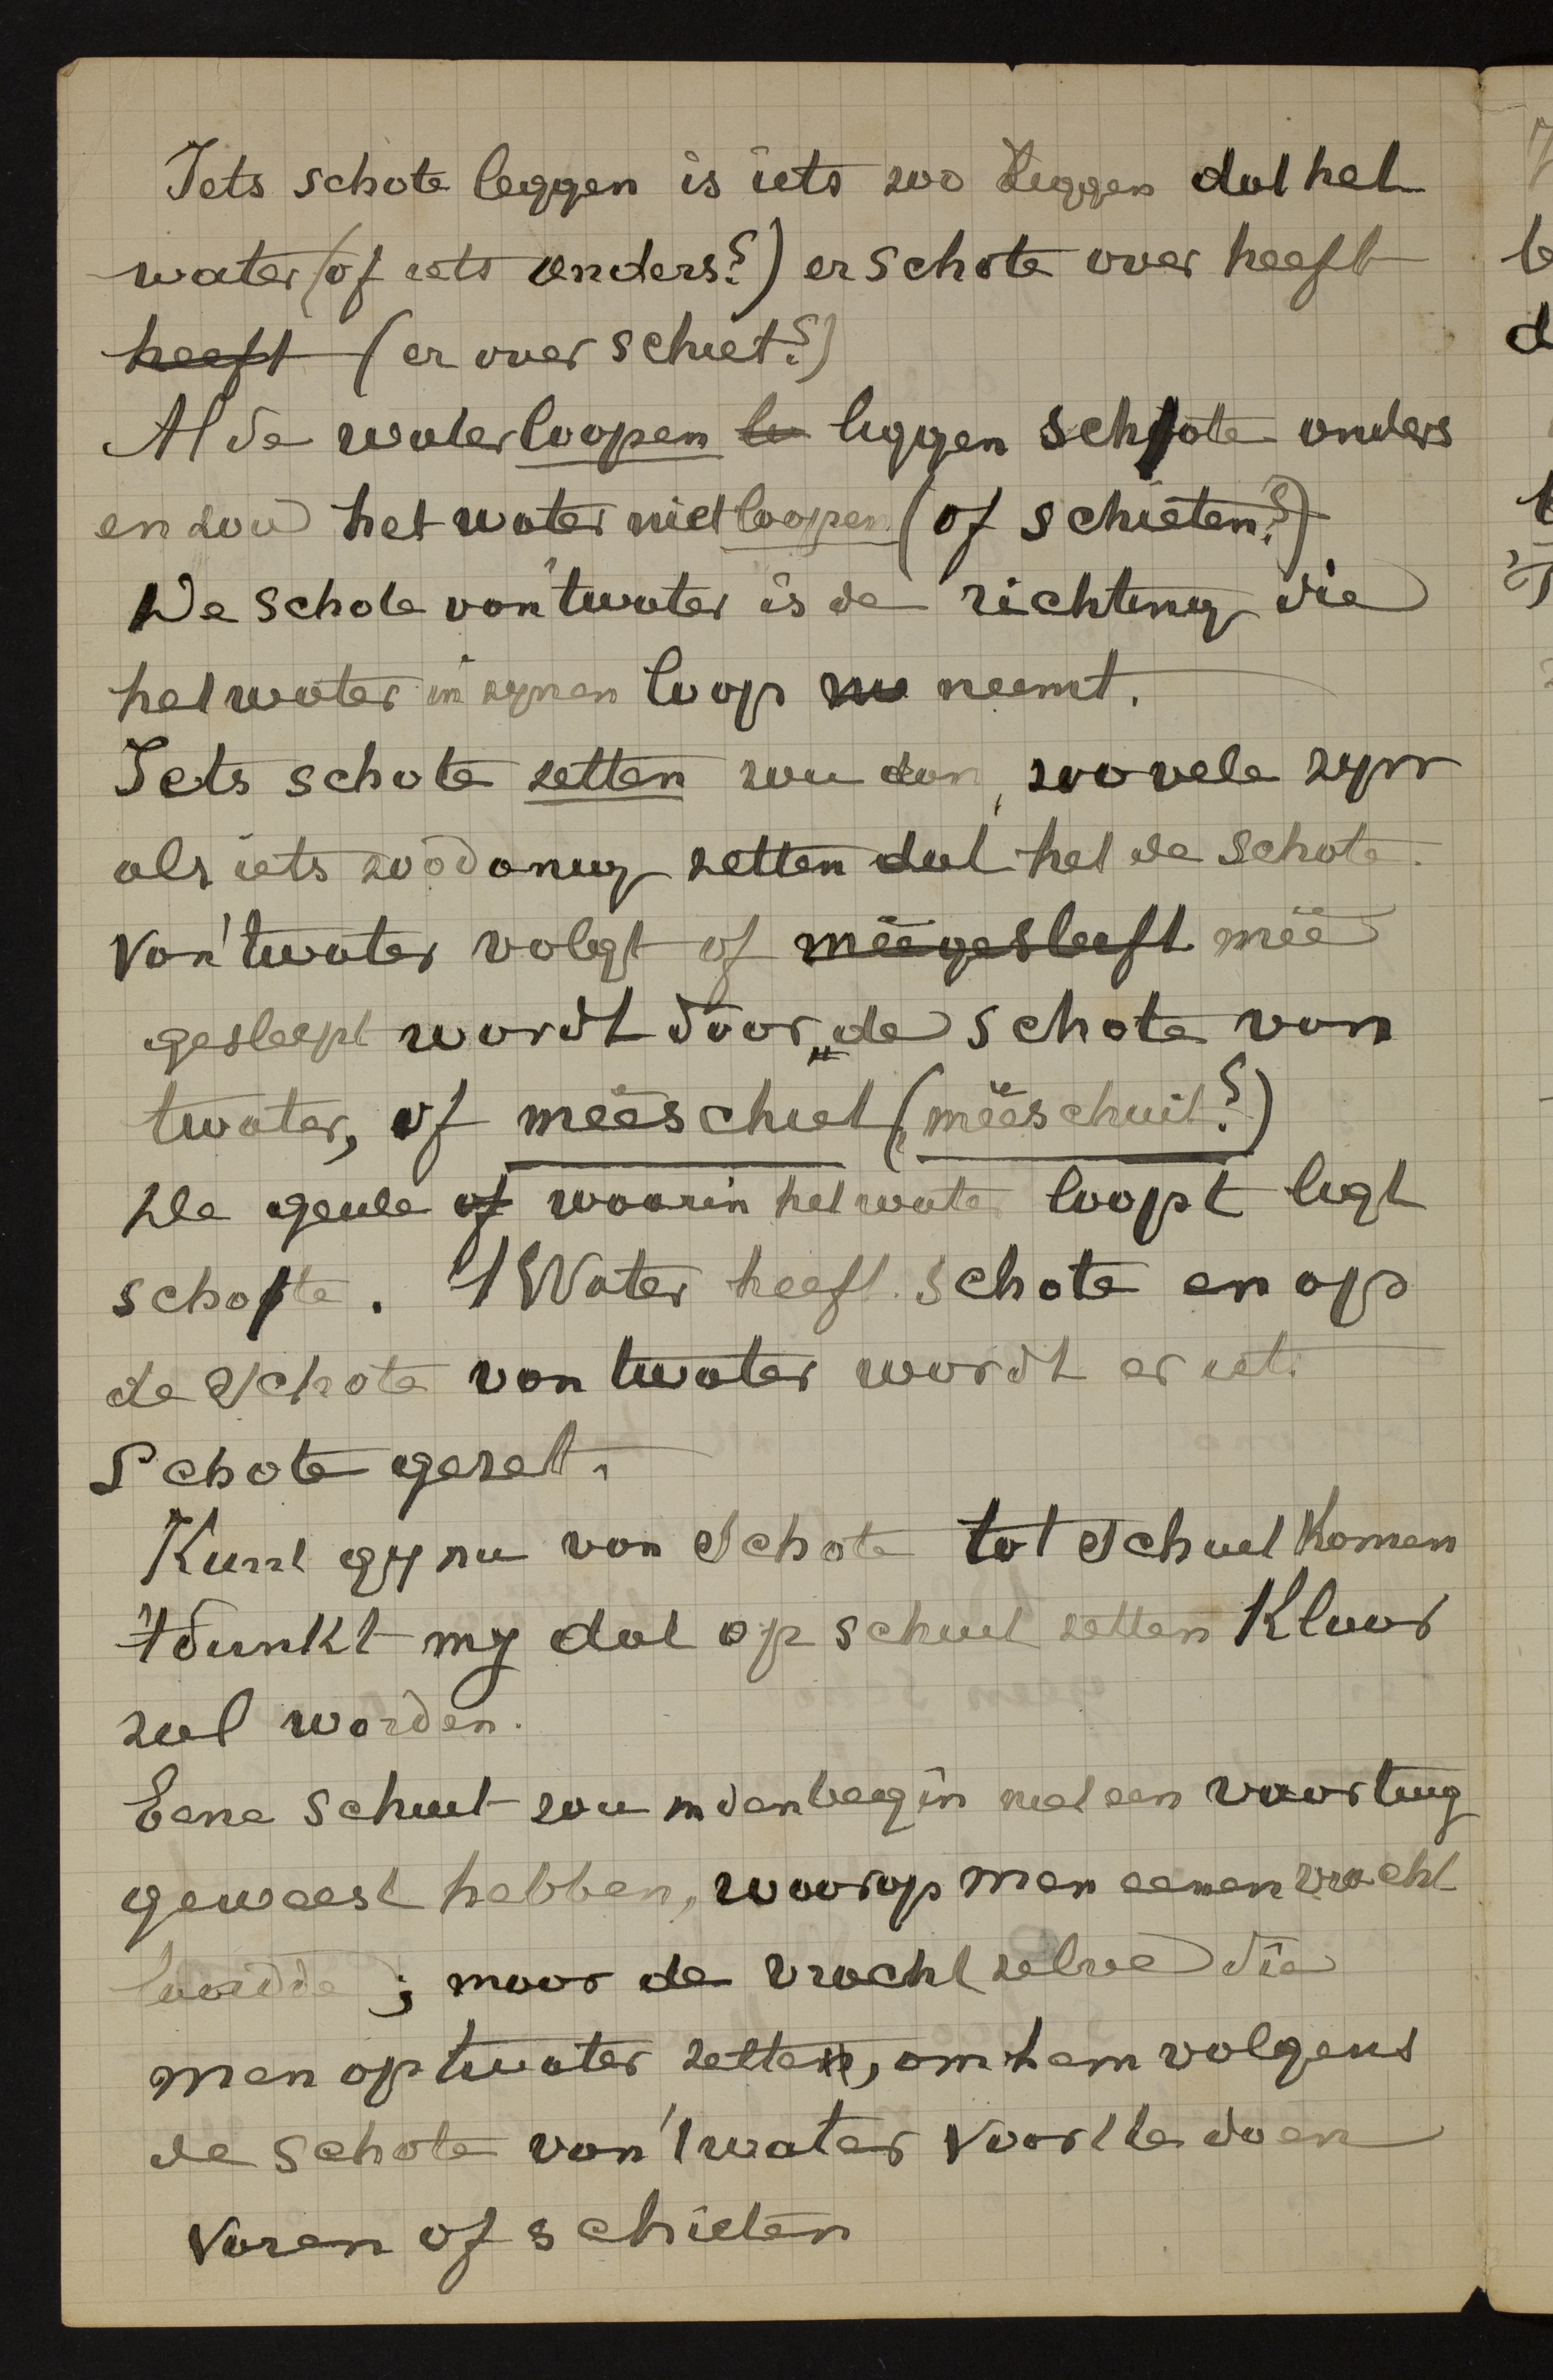 Iets schote leggen is iets zoo leggen dat het
water (of iets anders?) er schote over heeft
heeft (er over schiet?)
Al de waterloopen le liggen schote anders
en zou het water niet loopen (of schieten?)
De schote van 't water is de richting die
het water in zynen loop ne neemt.
Iets schote zetten zou dan, zoovele zyn
als iets zoodanig zetten dat het de schote
van 't water volgt of meêgesleeft meê
gesleept wordt door „de schote van
twater, of meêschiet (meêschuit?)
De geule of waarin het water loopt ligt
schote. 't Water heeft schote en op
de schote van twater wordt er iet
Schote gezet.
Kunt gy nu van Schote tot Schuit komen
't dunkt my dat op schuit zetten klaar
zal worden.
Eene schuit zou in den begin niet een vaartuig
geweest hebben, waarop men eenen vracht
laadde; maar de vracht zelve die
men op twater zette, om hem volgens
de schote van 't water voort te doen
varen of schieten